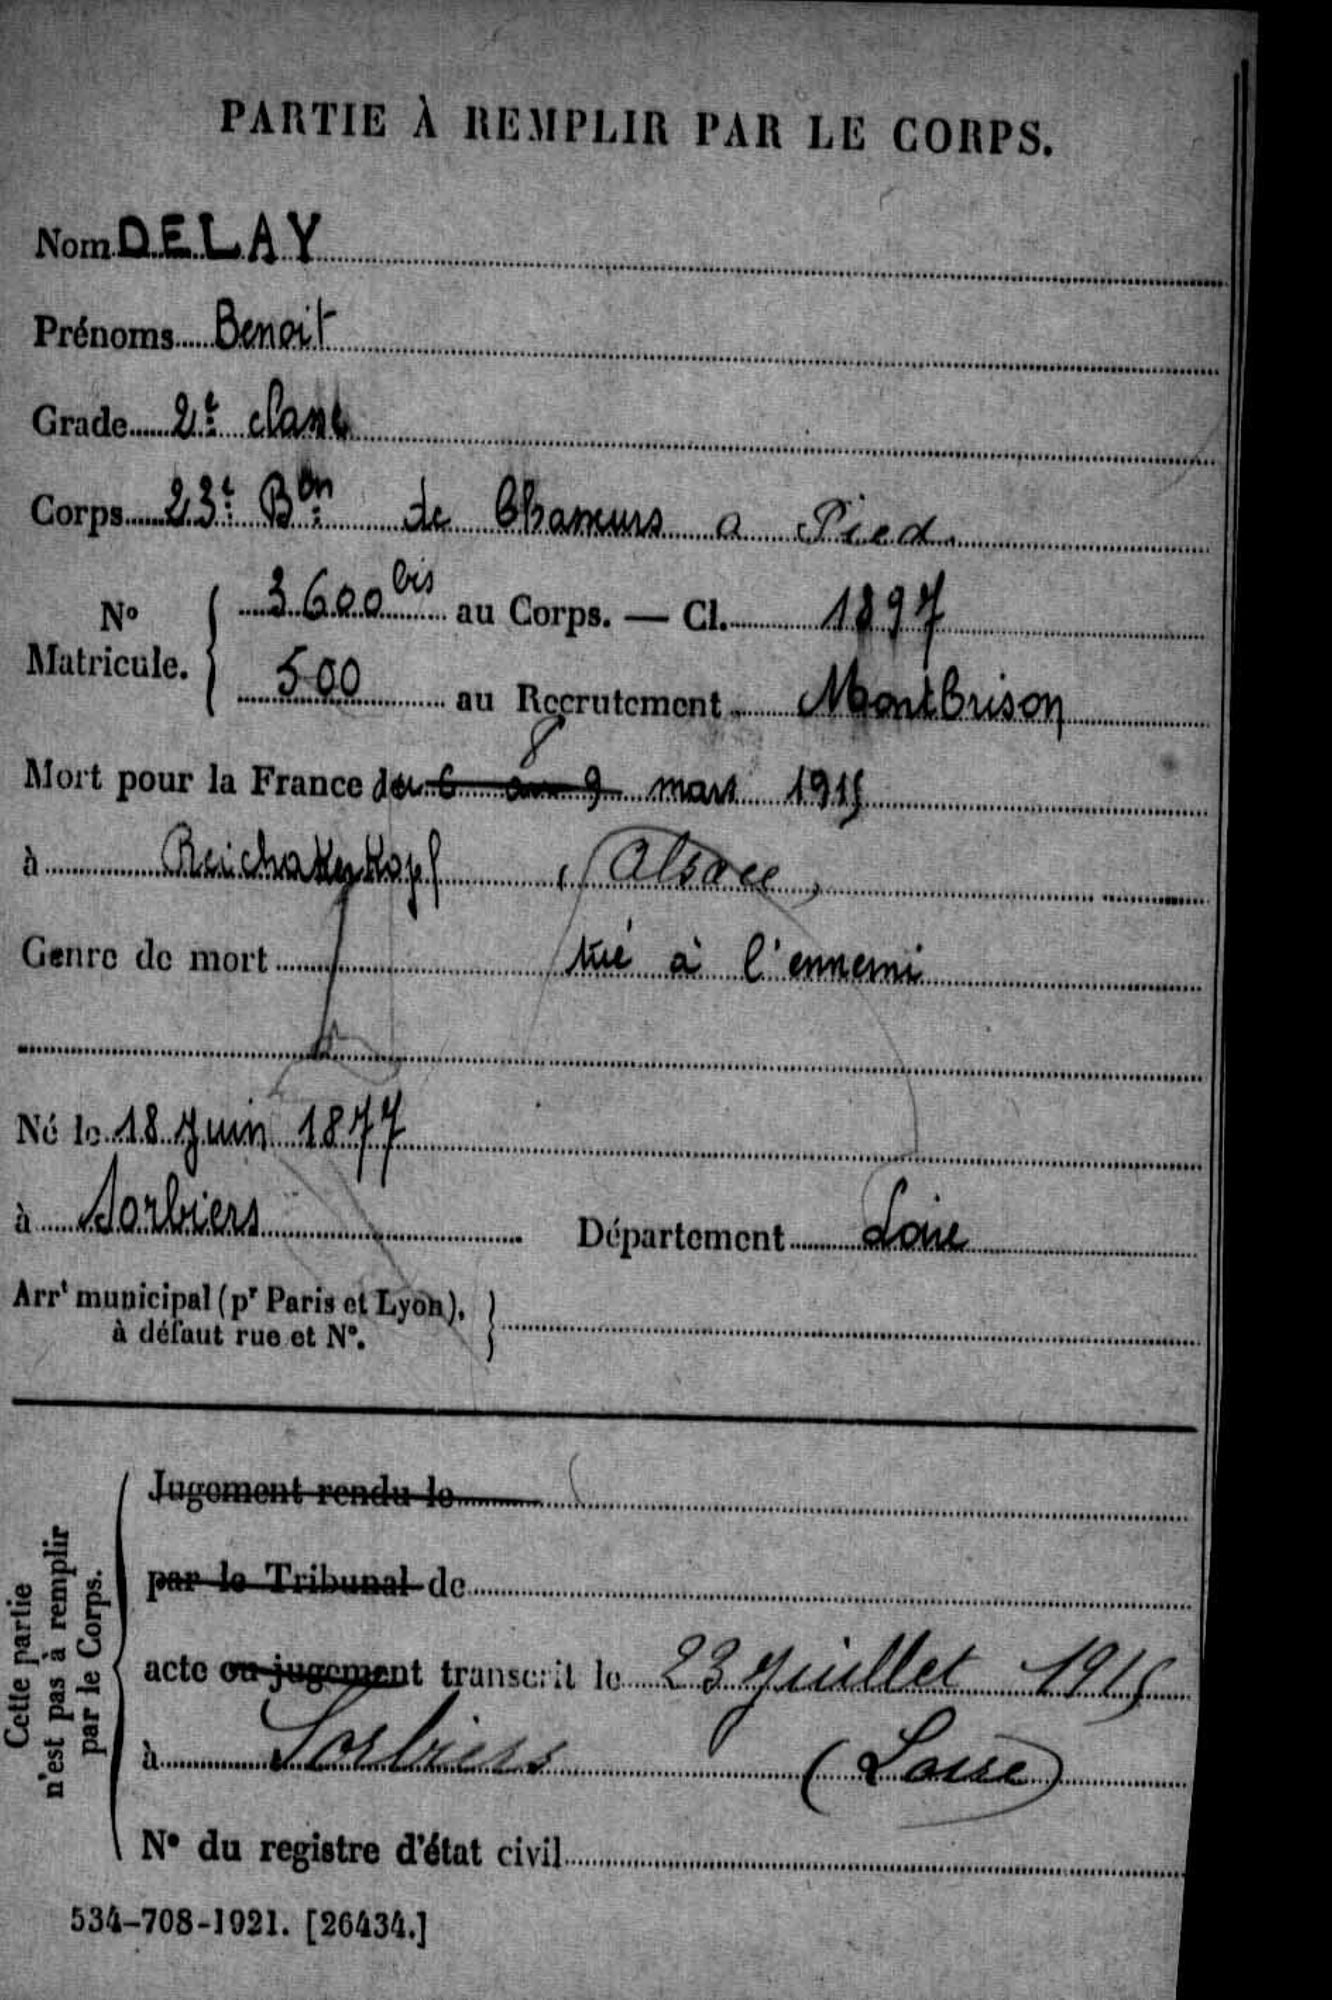 PARTIE À REMPLIR PAR LE CORPS.
Nom DELAY
Prénoms Benoit
Grade 2e classe
Corps 23e Bon de Chasseurs a Pied
No Matricule. 3600 bis au Corps. — Cl. 1897
500 au Recrutement Montbrison
8
Mort pour la France du 6 au 9 mars 1915
à Reichakerkopf (Alsace)
Genre de mort tué à l'ennemi
Né le 18 Juin 1877
à Sorbiers Département Loire
Arrt municipal (pr Paris et Lyon),
à défaut rue et No.
Cette partie
n'est pas à remplir
par le Corps.
Jugement rendu le
par le Tribunal de
acte ou jugement transcrit le 23 Juillet 1915
à Sorbiers (Loire)
No du registre d'état civil
534-708-1921. [26434.]